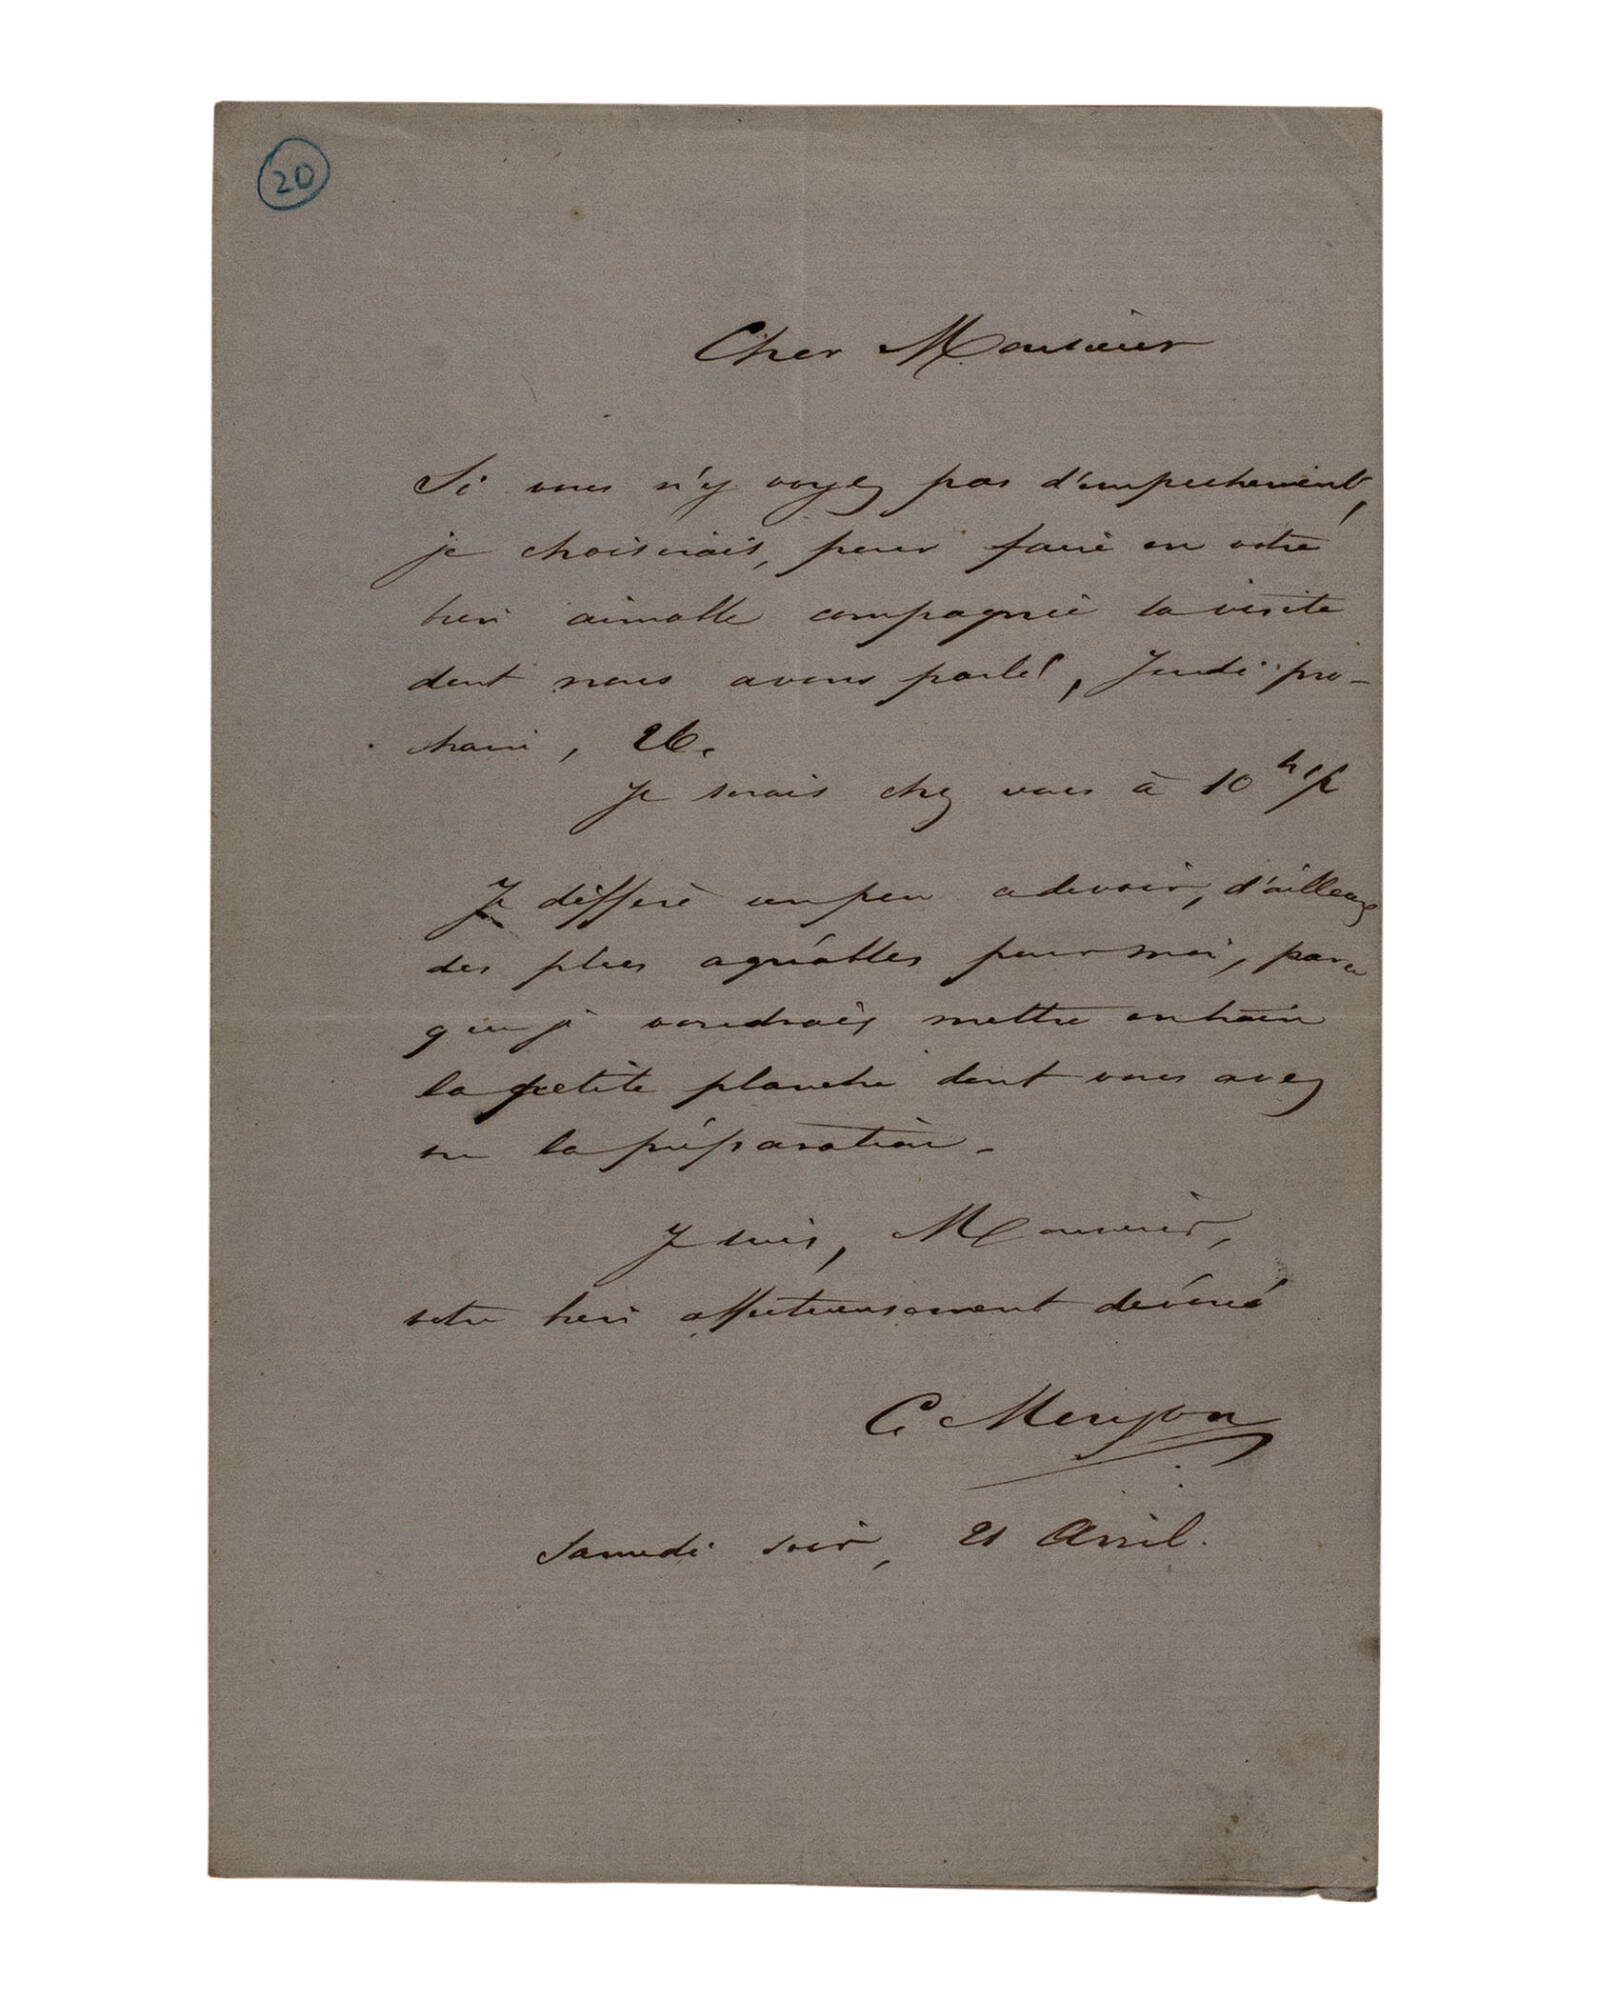 20
Cher Monsieur
Si vous n'y voyez pas d'empechement,
je choisirais, pour faire en votre
bien aimable compagnie la visite
dont nous avons parlé, Jeudi pro-
chain, 26.
Je serais chez vous à 10 h
Je diffère un peu ce devoir, d'ailleurs
des plus agréables pour moi, parce
que je voudrais mettre en train
la petite planche dont vous avez
vu la préparation.
Je suis, Monsieur,
votre bien affectueusement dévoué
C. Meryon
Samedi soir, 21 Avril.